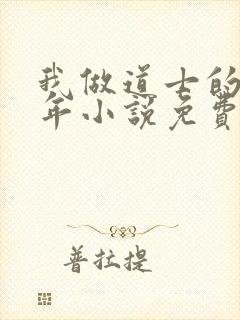 我做道士的
年小説免費
普拉提